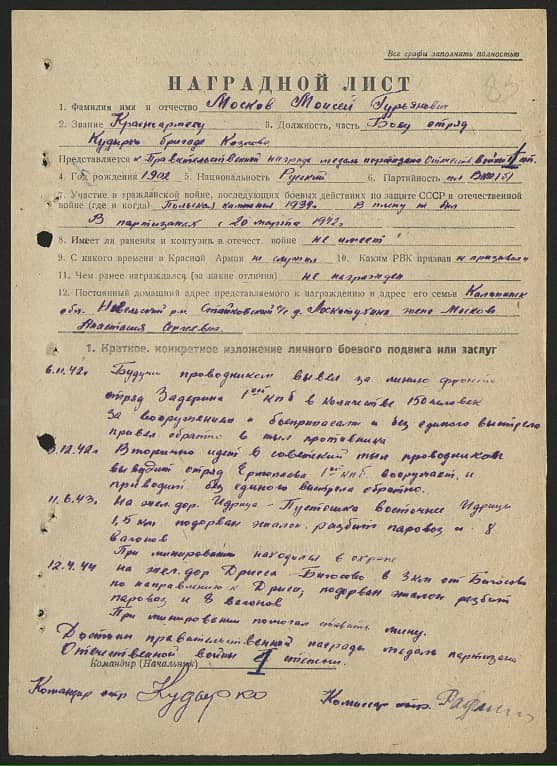 Все графы заполнять полностью
НАГРАДНОЙ ЛИСТ
1. Фамилия имя и отчество Москов Моисей Гурьянович
2. Звание Красноармеец 3. Должность, часть Боец отряд
Кудырко бригады
Представляется к Правительственной награде медаль партизана Отечеств войны 1 ст.
4. Год рождения 1902 5. Национальность Русский 6. Партийность
5. Участие в гражданской войне, последующих боевых действиях по защите СССР и отечественной
войне (где и когда) Польская кампания 1939. В плену не был
В партизанах с 20 марта 1942г
8. Имеет ли ранения и контузии в отечест. войне не имеет
9. С какого времени в Красной Армии не служил 10. Каким РВК призван не призывался
11. Чем ранее награждался (за какие отличия) не награжден
12. Постоянный домашний адрес представляемого к награждению и адрес его семьи Калининск
обл. Невельский р-н д. жена Москова
Анастасия Сергеевна
1. Краткое, конкретное изложение личного боевого подвига или заслуг
6.11.42г Будучи проводником вывел за линию фронта
отряд Задерина 1ой кпб в количестве 150 человек
За вооружением и боеприпасами и без единого выстрела
привел обратно в тыл противника
12.42г Вторично идет в советский тыл проводником
выводит отряд 1ой кпб. вооружает и
приводит без единого выстрела обратно.
11.6.43. На жел. дор. Идрица - Пустошка восточнее Идрицы
1,5 км подорван эшалон. разбит паровоз и 8
вагонов
При минировании находился в охране
12.4.44 на жел дор Дрисса - Бигосово в 3 км от Бигосово
по направлению к Дрисса, подорван эшалон разбит
паровоз и 8 вагонов
При минировании помогал ставить мину.
Достоин правительственной награды медаль партизана
Отечественной войны 1 степени.
Командир (Начальник)
Командир отр Кудырко Комиссар отр.